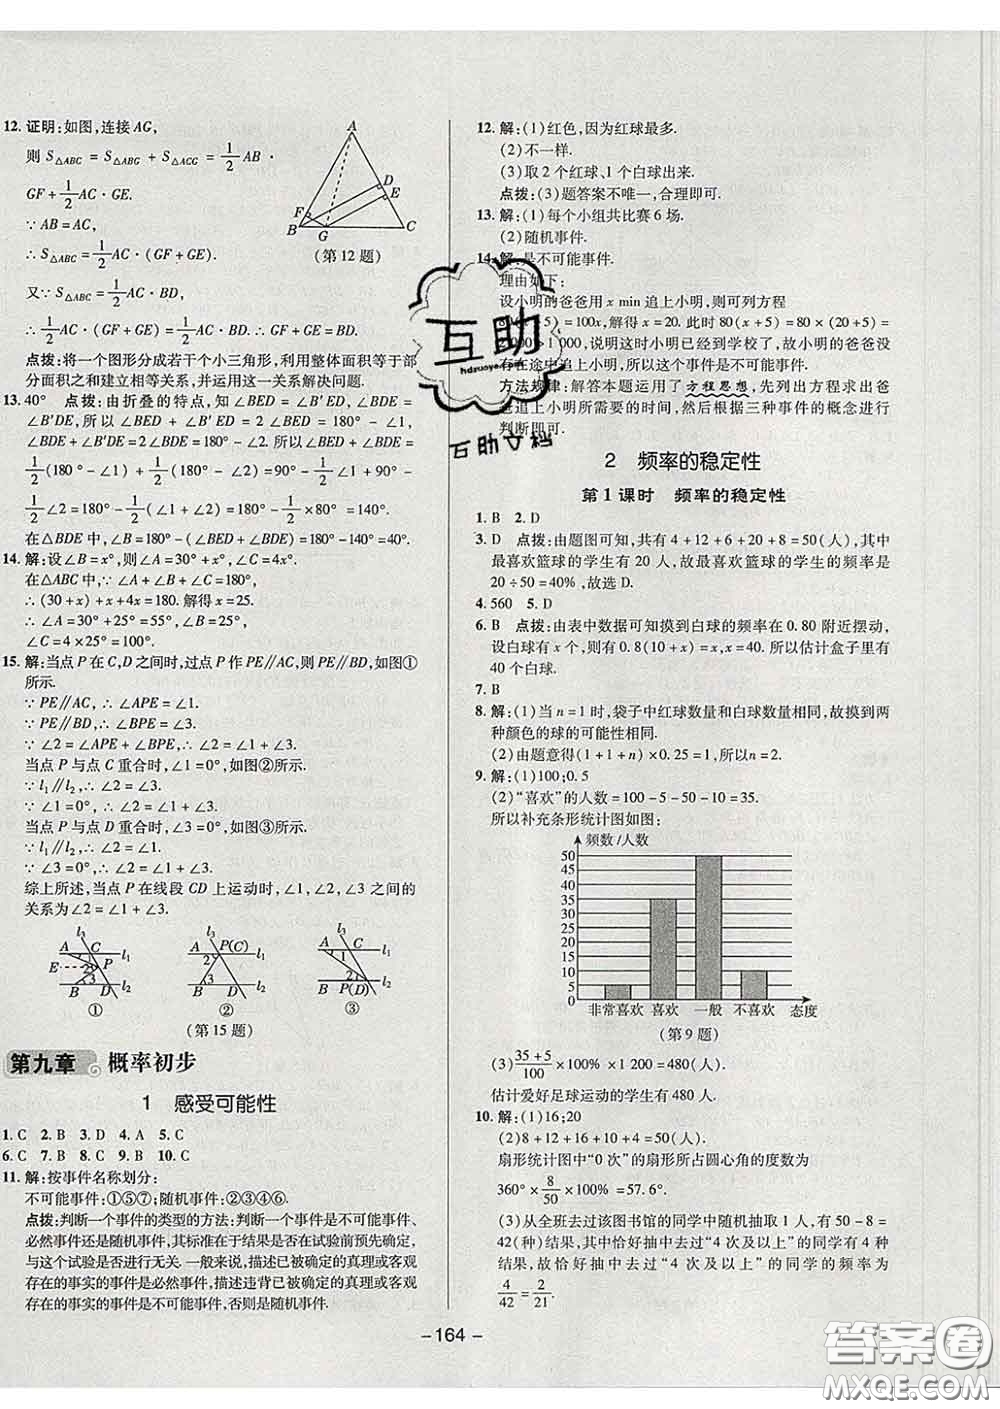 12. 证明:如图,连接 AG,
则 S△ABC = S△ABG + S△ACG = 1/2 AB ·
GF + 1/2 AC · GE.
∵ AB = AC,
∴ S△ABC = 1/2 AC · (GF + GE).
又∵ S△ABC = 1/2 AC · BD,
∴ 1/2 AC · (GF + GE) = 1/2 AC · BD. ∴ GF + GE = BD.
点拨:将一个图形分成若干个小三角形,利用整体面积等于部
分面积之和建立相等关系,并运用这一关系解决问题.
A
D
E
F
B
G
C
(第 12 题)
13. 40° 点拨:由折叠的特点,知∠BED = ∠B′ED,∠BDE =
∠B′DE,所以∠BED + ∠B′ED = 2∠BED = 180° - ∠1,
∠BDE + ∠B′DE = 2∠BDE = 180° - ∠2. 所以∠BED + ∠BDE =
1/2(180° - ∠1) + 1/2(180° - ∠2) = 90° - 1/2∠1 + 90° -
1/2∠2 = 180° - 1/2(∠1 + ∠2) = 180° - 1/2 × 80° = 140°.
在△BDE 中,∠B = 180° - (∠BED + ∠BDE) = 180° - 140° = 40°.
14. 解:设∠B = x°,所以∠A = 30° + x°,∠C = 4x°.
在△ABC 中,∵ ∠A + ∠B + ∠C = 180°,
∴ (30 + x) + x + 4x = 180. 解得 x = 25.
∴ ∠A = 30° + 25° = 55°,∠B = 25°,
∠C = 4 × 25° = 100°.
15. 解:当点 P 在 C,D 之间时,过点 P 作 PE∥AC,则 PE∥BD,如图①
所示.
∵ PE∥AC,∴ ∠APE = ∠1.
∵ PE∥BD,∴ ∠BPE = ∠3.
∵ ∠2 = ∠APE + ∠BPE,∴ ∠2 = ∠1 + ∠3.
当点 P 与点 C 重合时,∠1 = 0°,如图②所示.
∵ l₁∥l₂,∴ ∠2 = ∠3.
∵ ∠1 = 0°,∴ ∠2 = ∠1 + ∠3.
当点 P 与点 D 重合时,∠3 = 0°,如图③所示.
∵ l₁∥l₂,∴ ∠2 = ∠1.
∵ ∠3 = 0°,∴ ∠2 = ∠1 + ∠3.
综上所述,当点 P 在线段 CD 上运动时,∠1,∠2,∠3 之间的
关系为∠2 = ∠1 + ∠3.
l₃ A C l₁ 1 E 2 P 3 B D l₂ ①
l₃ A P(C) l₁ 2 3 B D l₂ ②
l₃ A C l₁ 1 2 B P(D) l₂ ③
(第 15 题)
第九章 概率初步
1 感受可能性
1. C 2. B 3. D 4. A 5. C
6. C 7. B 8. B 9. B 10. C
11. 解:按事件名称划分:
不可能事件:①⑤⑦;随机事件:②③④⑥.
点拨:判断一个事件的类型的方法:判断一个事件是不可能事件、
必然事件还是随机事件,其标准在于结果是否在试验前预先确定,
与这个试验是否进行无关. 一般来说,描述已被确定的真理或客观
存在的事实的事件是必然事件,描述违背已被确定的真理或客观
存在的事实的事件是不可能事件,否则是随机事件.
12. 解:(1)红色,因为红球最多.
(2)不一样.
(3)取 2 个红球、1 个白球出来.
点拨:(3)题答案不唯一,合理即可.
13. 解:(1)每个小组共比赛 6 场.
(2)随机事件.
14. 解:是不可能事件.
理由如下:
设小明的爸爸用 x min 追上小明,则可列方程
80(x + 5) = 100x,解得 x = 20. 此时 80(x + 5) = 80 × (20 + 5) =
2 000 > 1 000,说明这时小明已经到学校了,故小明的爸爸没
存在途中追上小明,所以这个事件是不可能事件.
方法规律:解答本题运用了方程思想,先列出方程求出爸
爸追上小明所需要的时间,然后根据三种事件的概念进行
判断即可.
互助
hdzuoye.com
互助文档
2 频率的稳定性
第 1 课时 频率的稳定性
1. B 2. D
3. D 点拨:由题图可知,共有 4 + 12 + 6 + 20 + 8 = 50(人),其中
最喜欢篮球的学生有 20 人,故最喜欢篮球的学生的频率是
20 ÷ 50 = 40%,故选 D.
4. 560 5. D
6. B 点拨:由表中数据可知摸到白球的频率在 0.80 附近摆动,
设白球有 x 个,则有 0.8(10 + x) = x,x = 40. 所以估计盒子里有
40 个白球.
7. B
8. 解:(1)当 n = 1 时,袋子中红球数量和白球数量相同,故摸到两
种颜色的球的可能性相同.
(2)由题意得(1 + 1 + n) × 0.25 = 1,所以 n = 2.
9. 解:(1)100;0.5
(2)“喜欢”的人数 = 100 - 5 - 50 - 10 = 35.
所以补充条形统计图如图:
频数/人数
50
45
40
35
30
25
20
15
10
5
0
非常喜欢 喜欢 一般 不喜欢 态度
(第 9 题)
(3) (35 + 5)/100 × 100% × 1 200 = 480(人).
估计爱好足球运动的学生有 480 人.
10. 解:(1)16;20
(2)8 + 12 + 16 + 10 + 4 = 50(人).
扇形统计图中“0 次”的扇形所占圆心角的度数为
360° × 8/50 × 100% = 57.6°.
(3)从全班去过该图书馆的同学中随机抽取 1 人,有 50 - 8 =
42(种)结果,其中恰好抽中去过“4 次及以上”的同学有 4 种
结果,故恰好抽中去过“4 次及以上”的同学的频率为
4/42 = 2/21.
- 164 -
答案圈
MXQE.COM